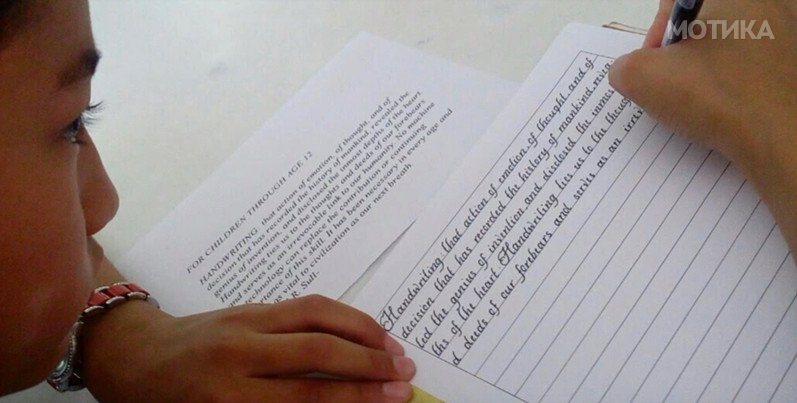 МОТИКА
FOR CHILDREN THROUGH AGE 12
HANDWRITING that action of emotion, of thought, and of
decision that has recorded the history of mankind, revealed the
genius of invention, and disclosed the inmost depths of the heart
Handwriting ties us to the thoughts and deeds of our forebears
and serves as an irrevocable link to our humanity. No machine
technology can replace the contribution or continuing
rtance of this skill. It has been necessary in every age and
as vital to civilization as our next breath
R. Sull-
Handwriting that action of emotion, of thought, and of
decision that has recorded the history of mankind, revea
led the genius of invention and disclosed the inmos
ths of the heart. Handwriting ties us to the thoug
d deeds of our forebears and serves as an irrev